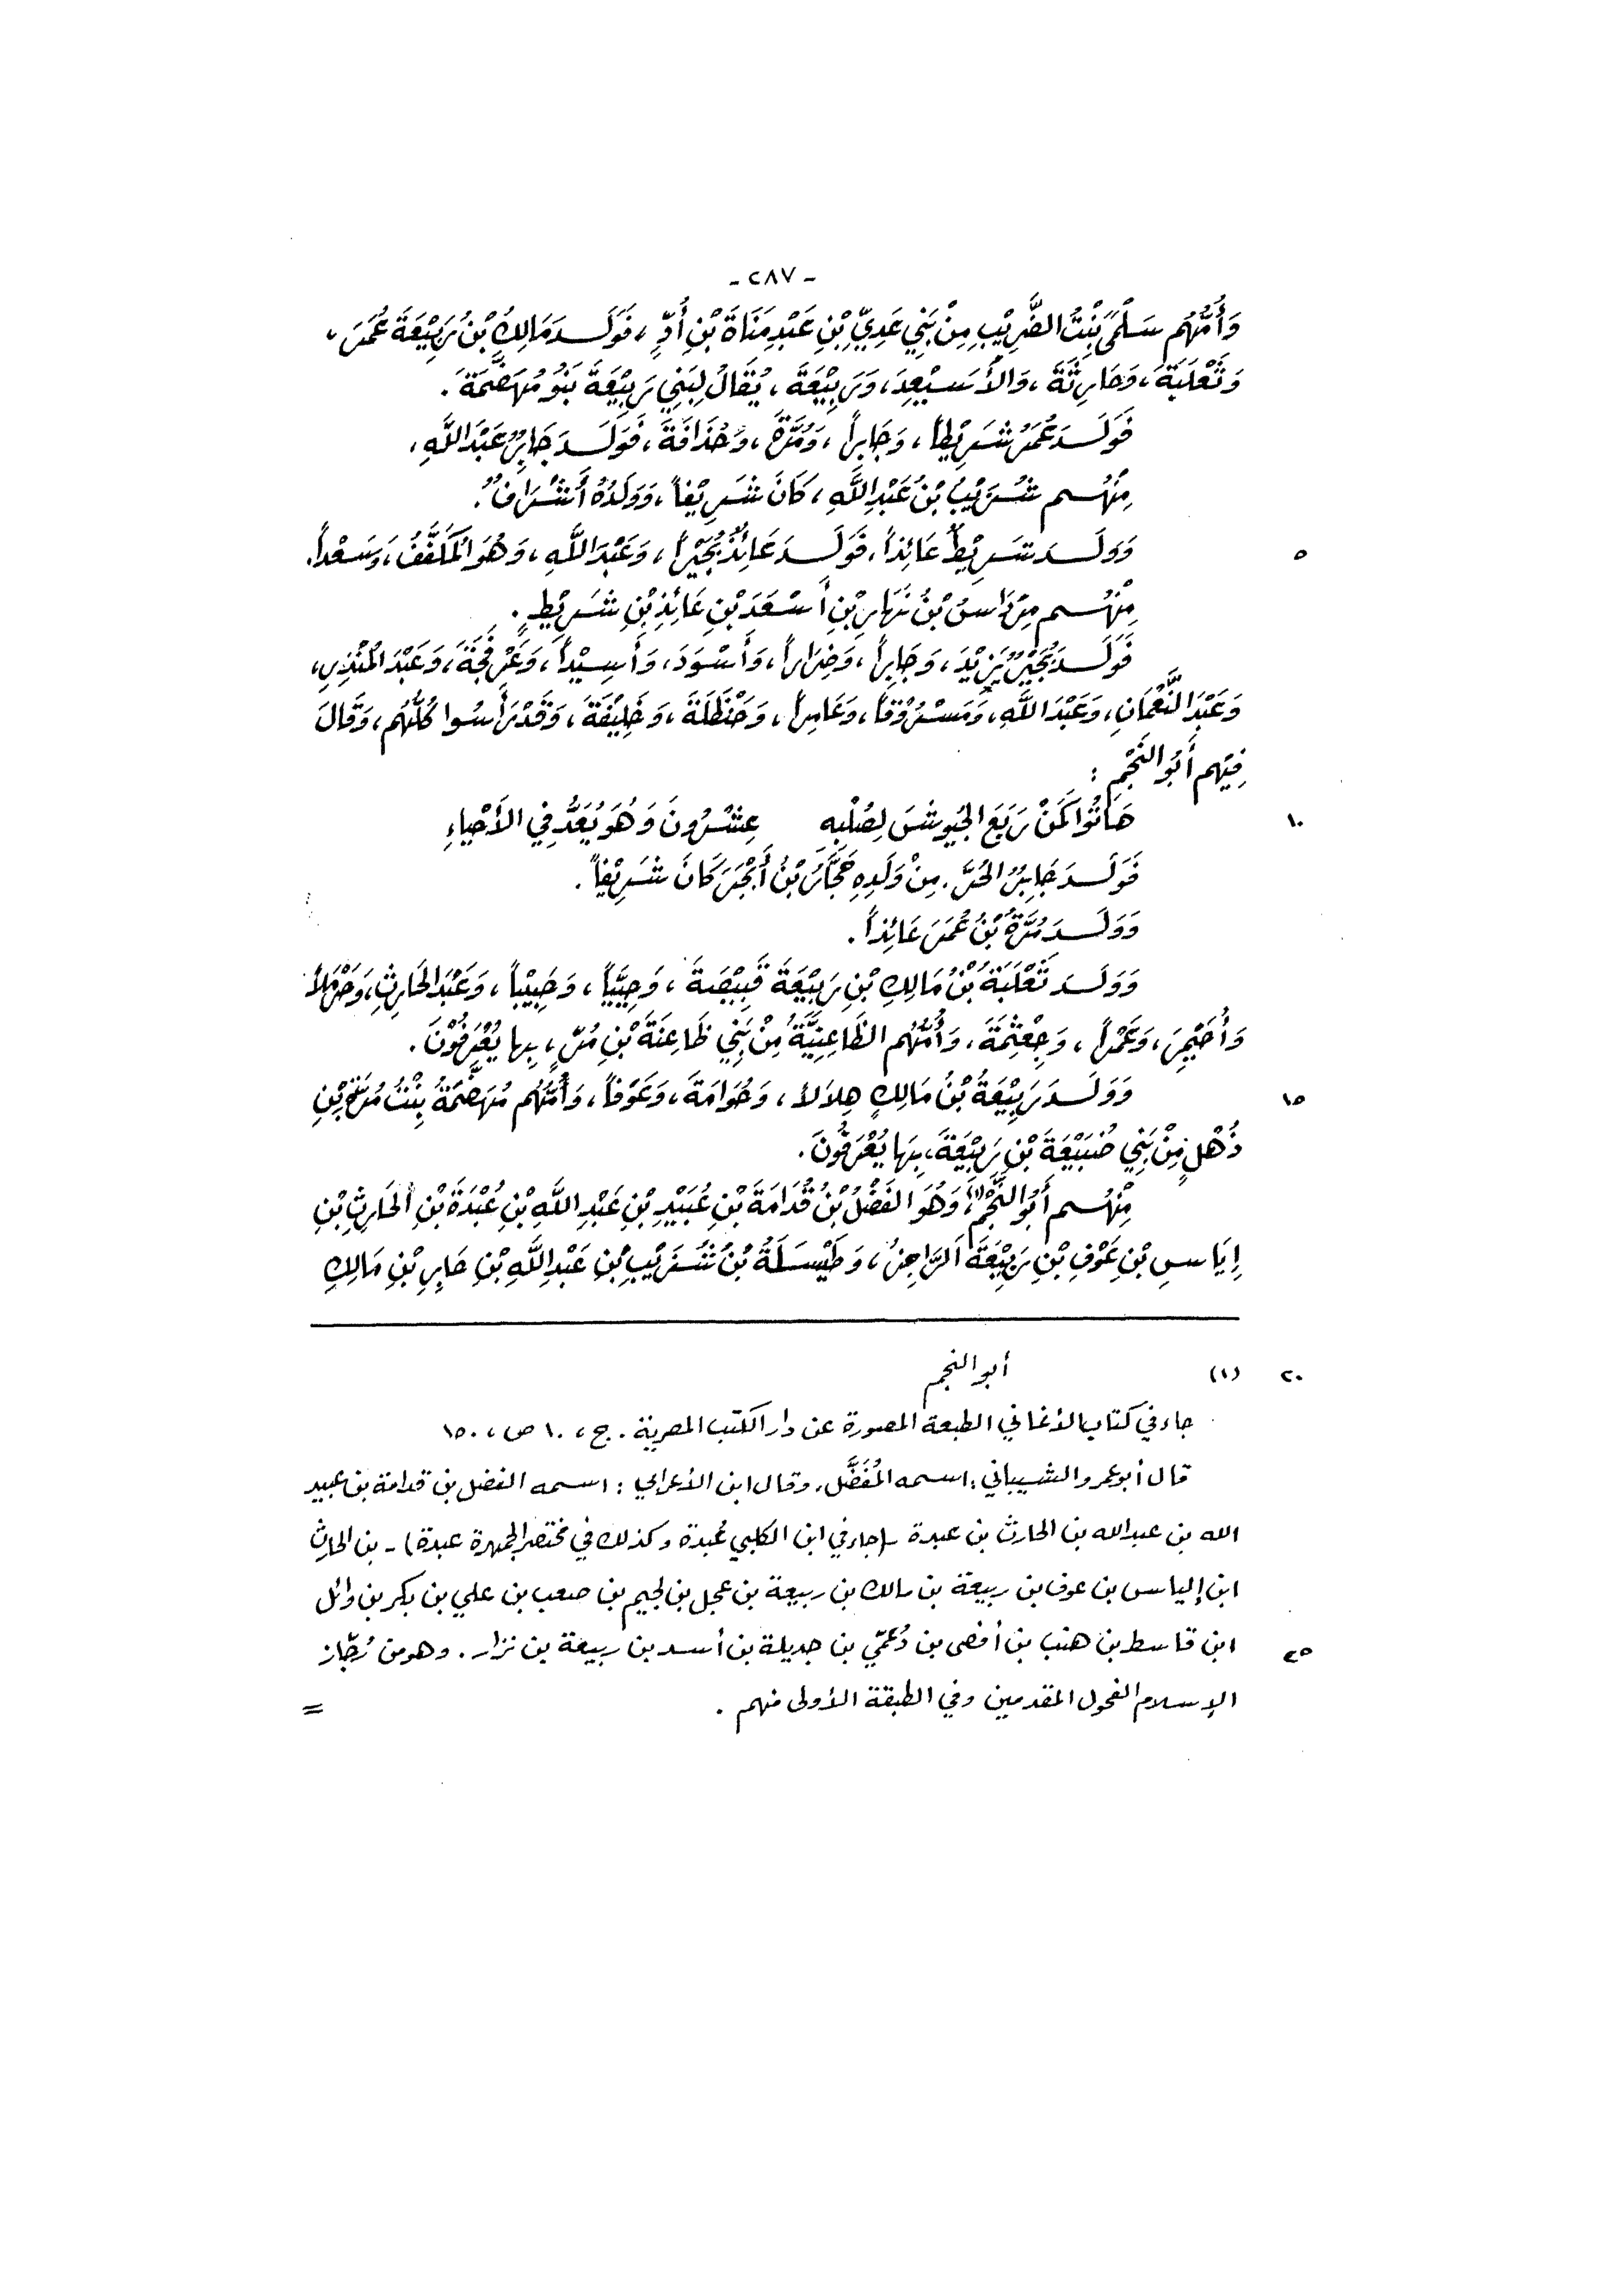 - ٢٨٧ -
وَأُمُّهُم سَلْمَى بِنْتُ الضَّرِيْبِ مِنْ بَنِي عَدِيِّ بْنِ عَبْدِ مَنَاةَ بْنِ أُدٍّ، فَوَلَدَ مَالِكُ بْنُ رَبِيْعَةَ عُمَرَ،
وَثَعْلَبَةَ، وَحَارِثَةَ، وَالأُسَيْعِدَ، وَرَبِيْعَةَ، يُقَالُ لِبَنِي رَبِيْعَةَ بَنُو مُهَضَّمَةَ.
فَوَلَدَ عُمَرُ شَرِيْطاً، وَجَابِراً، وَمُرَّةَ، وَحُذَافَةَ، فَوَلَدَ جَابِرٌ عَبْدَ اللَّهِ،
مِنْهُم شَرِيْبُ بْنُ عَبْدِ اللَّهِ، كَانَ شَرِيْفاً، وَوَلَدُهُ أَشْرَافٌ.
٥ وَوَلَدَ شَرِيْطٌ عَائِذاً، فَوَلَدَ عَائِذٌ بُجَيْراً، وَعَبْدَ اللَّهِ، وَهُوَ المُكَفَّفُ، وَسَعْداً.
مِنْهُم مِرْدَاسُ بْنُ نَهَارِ بْنِ أَسْعَدَ بْنِ عَائِذِ بْنِ شَرِيْطٍ.
فَوَلَدَ بُجَيْرٌ يَزِيْدَ، وَجَابِراً، وَضِرَاراً، وَأَسْوَدَ، وَأَسِيْداً، وَعَرْفَجَةَ، وَعَبْدَ المُنْذِرِ،
وَعَبْدَ النُّعْمَانِ، وَعَبْدَ اللَّهِ، وَمَسْرُوْقاً، وَعَامِراً، وَحَنْظَلَةَ، وَخَلِيْفَةَ، وَقَدْ رَأَسُوا كُلُّهُم، وَقَالَ
فِيْهِم أَبُو النَّجْمِ :
١٠ هَاتُوا كَمَنْ رَبَعَ الجُيُوشَ لِصُلْبِهِ عِشْرُونَ وَهُوَ يُعَدُّ فِي الأَحْيَاءِ
فَوَلَدَ جَابِرٌ الحُرَّ. مِنْ وَلَدِهِ حَجَّارُ بْنُ أَبْجَرَ كَانَ شَرِيْفاً.
وَوَلَدَ مُرَّةُ بْنُ عُمَرَ عَائِذاً.
وَوَلَدَ ثَعْلَبَةُ بْنُ مَالِكِ بْنِ رَبِيْعَةَ قَبِيْصَةَ، وَحُيَيَّاً، وَحَبِيْباً، وَعَبْدَ الحَارِثِ، وَحَرْمَلاً
وَأُحَيْمِرَ، وَعَمْراً، وَجِعْثِمَةَ، وَأُمُّهُم الظَّاعِنِيَّةُ مِنْ بَنِي ظَاعِنَةَ بْنِ مُرٍّ، بِهَا يُعْرَفُوْنَ.
١٥ وَوَلَدَ رَبِيْعَةُ بْنُ مَالِكٍ هِلاَلاً، وَحُوَامَةَ، وَعَوْفاً، وَأُمُّهُم مُهَضَّمَةُ بِنْتُ مُرَّخِ بْنِ
ذُهْلٍ مِنْ بَنِي ضُبَيْعَةَ بْنِ رَبِيْعَةَ، بِهَا يُعْرَفُونَ.
مِنْهُم أَبُو النَّجْمِ (١)، وَهُوَ الفَضْلُ بْنُ قُدَامَةَ بْنِ عُبَيْدِ بْنِ عَبْدِ اللَّهِ بْنِ عُبْدَةَ بْنِ الحَارِثِ بْنِ
إِيَاسِ بْنِ عَوْفِ بْنِ رَبِيْعَةَ الرَّاجِزُ، وَطَيْسَلَةُ بْنُ شَرِيْبِ بْنِ عَبْدِ اللَّهِ بْنِ جَابِرِ بْنِ مَالِكِ
٢٠ (١) أبو النجم
جاء في كتاب الأغاني الطبعة المصورة عن دار الكتب المصرية. ج، ١٠ ص، ١٥٠
قال أبو عمرو الشيباني : اسمه المُفَضَّل، وقال ابن الأعرابي : اسمه الفضل بن قدامة بن عبيد
الله بن عبدالله بن الحارث بن عبدة -(جاء في ابن الكلبي عُبدة وكذلك في مختصر الجمهرة عبدة)- بن الحارث
ابن إلياس بن عوف بن ربيعة بن مالك بن ربيعة بن عجل بن لجيم بن صعب بن علي بن بكر بن وائل
٢٥ ابن قاسط بن هنب بن أفصى بن دُعْمِّي بن جديلة بن أسد بن ربيعة بن نزار. وهو من رُجّاز
الإسلام الفحول المقدمين وفي الطبقة الأولى منهم. =